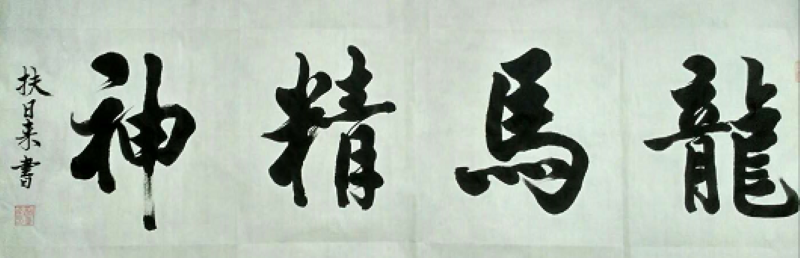 龍馬精神
扶日来書